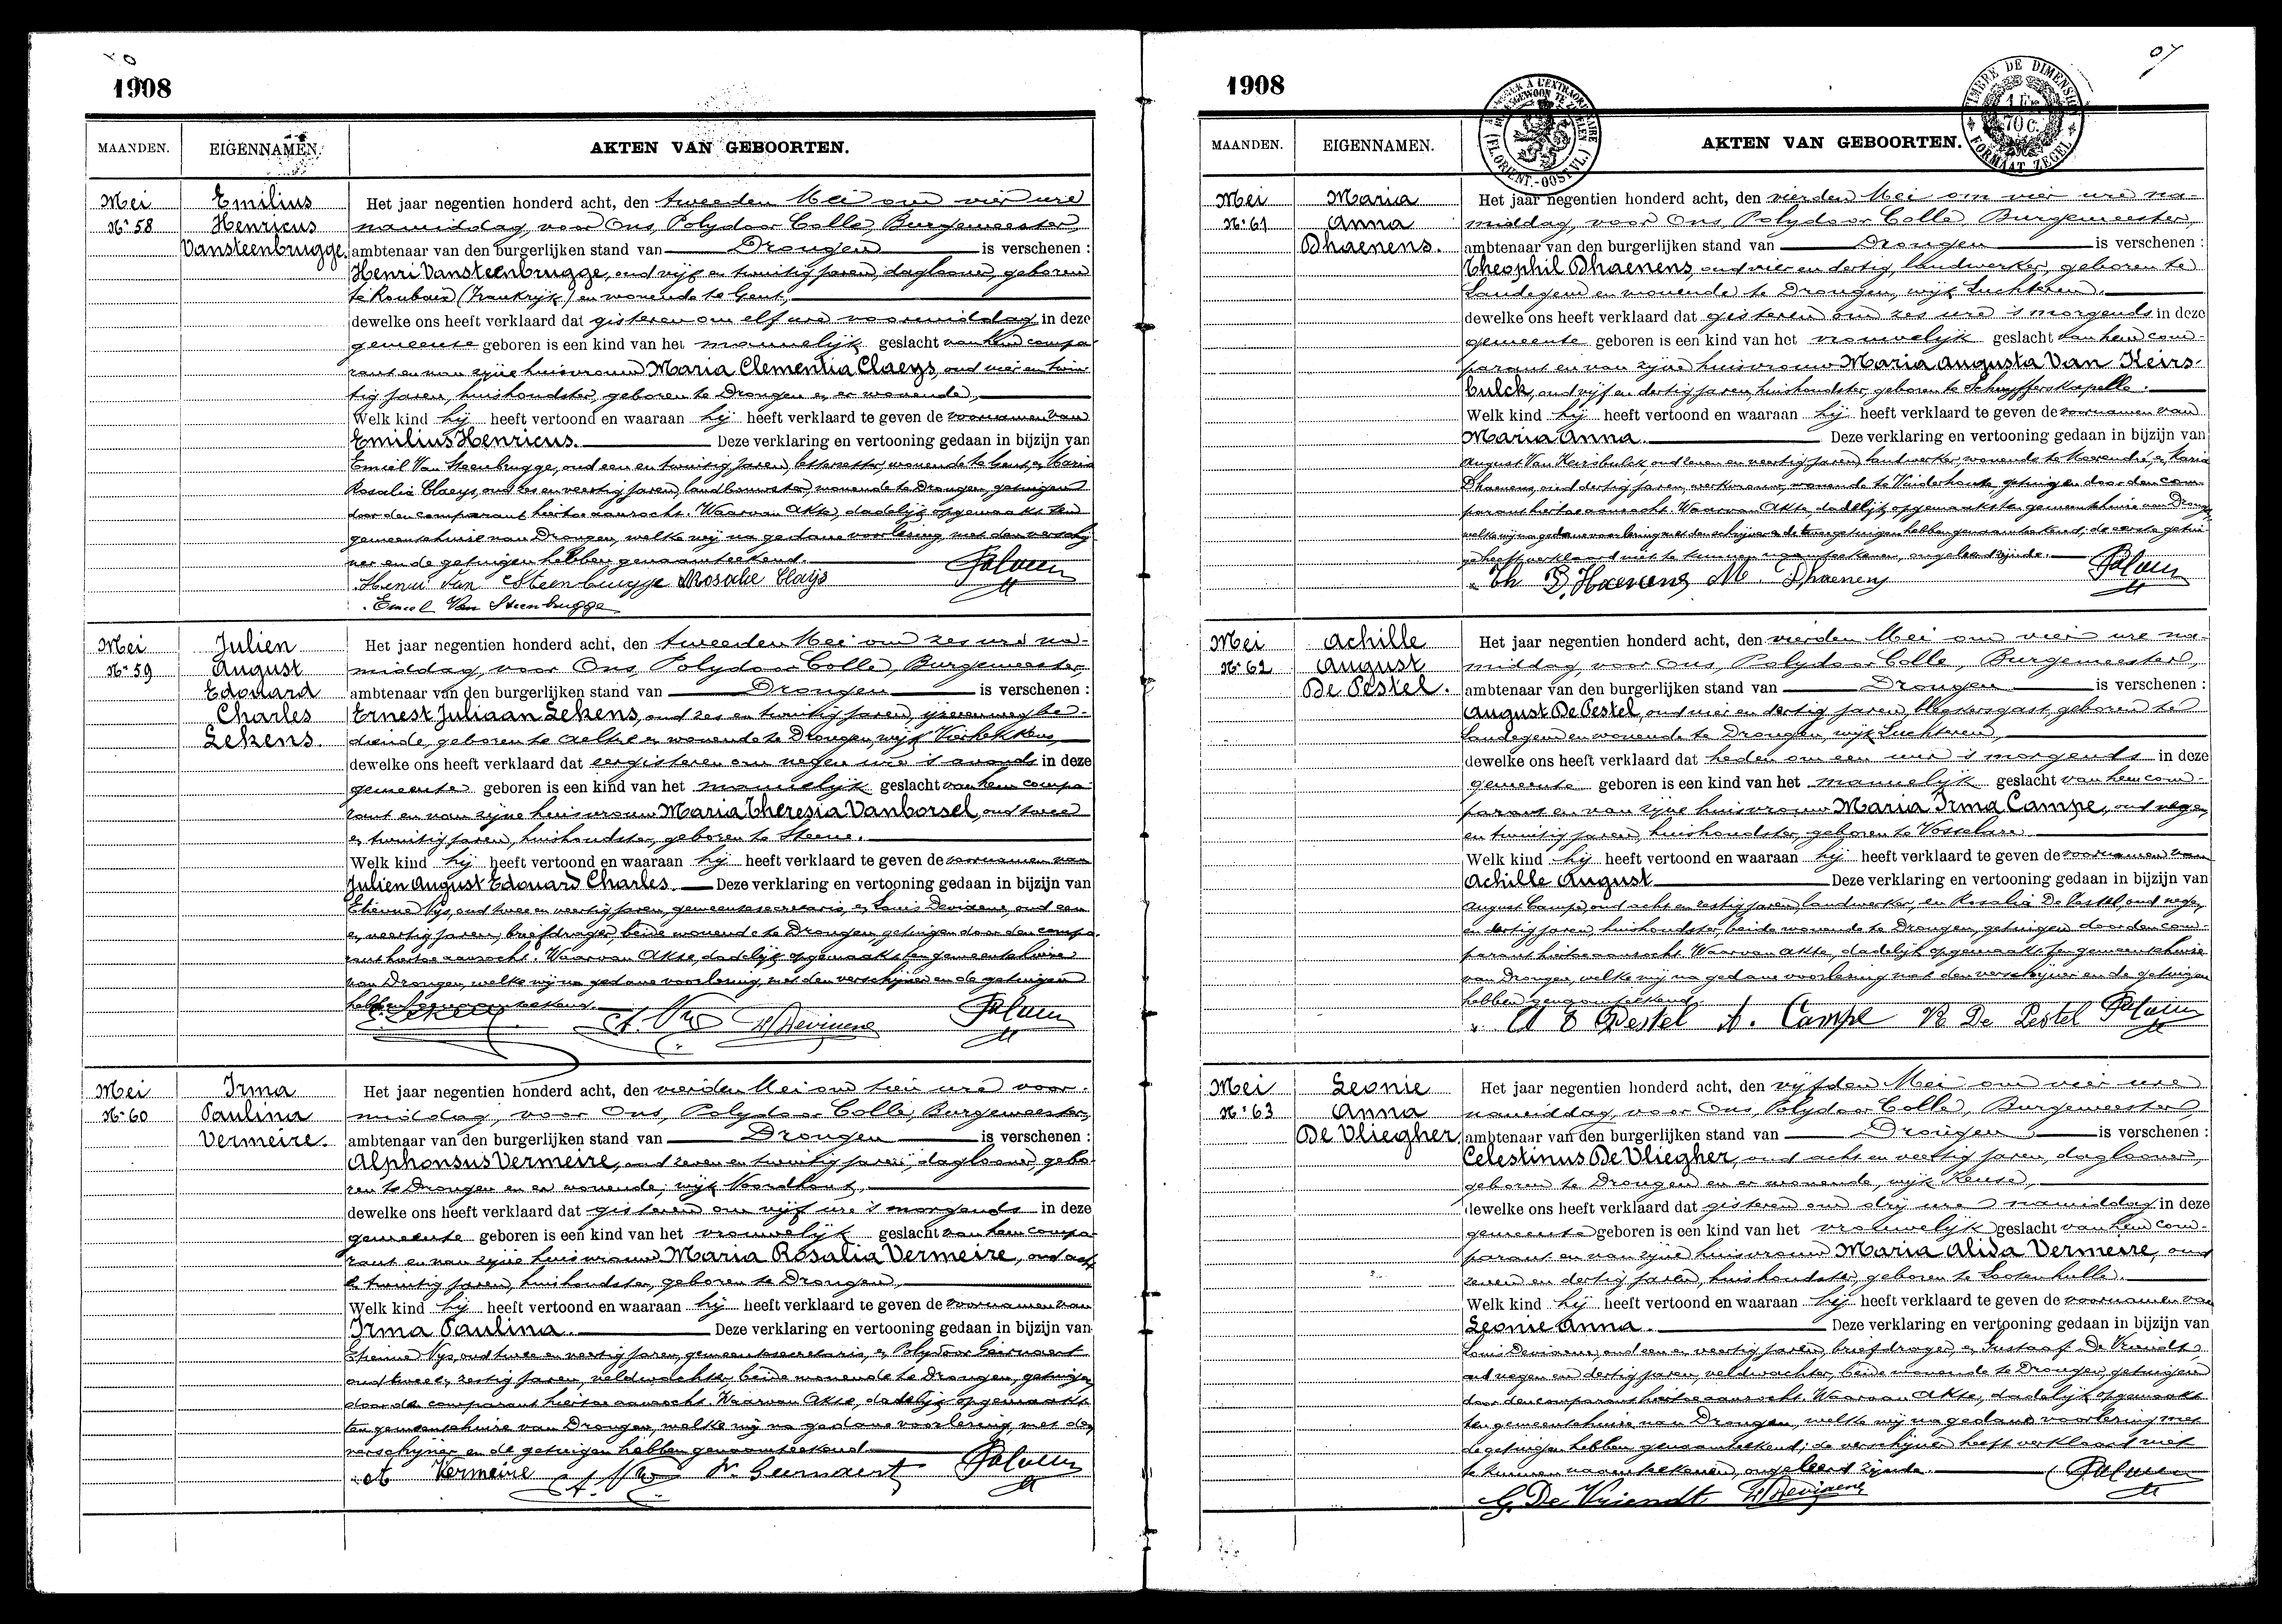 1908
MAANDEN. EIGENNAMEN. AKTEN VAN GEBOORTEN.
Mei
N° 58
Emilius
Henricus
Vansteenbrugge.
Het jaar negentien honderd acht, den tweeden Mei om vier ure
namiddag, voor Ons, Polydoor Colle, Burgemeester,
ambtenaar van den burgerlijken stand van Drongen is verschenen :
Henri Vansteenbrugge, oud vijf en twintig jaren, daglooner, geboren
te Roubaix (Frankrijk) en wonende te Gent,
dewelke ons heeft verklaard dat gisteren om elf ure voormiddag in deze
gemeente geboren is een kind van het mannelijk geslacht van hem compa-
rant en van zijne huisvrouw Maria Clementia Claeys, oud vier en twin-
tig jaren, huishoudster, geboren te Drongen en er wonende,
Welk kind hij heeft vertoond en waaraan hij heeft verklaard te geven de voornamen van
Emilius Henricus. Deze verklaring en vertooning gedaan in bijzijn van
Emiel Van Steenbrugge, oud een en twintig jaren, wonende te Gent, en Maria
Rosalia Claeys, oud zes en veertig jaren, landbouwster, wonende te Drongen, getuigen
door den comparant hiertoe aanzocht. Waarvan Akte, dadelijk opgemaakt ten
gemeentehuize van Drongen, welke wij na gedane voorlezing met den verschij-
ner en de getuigen hebben genaamteekend.
Henri Van Steenbrugge Rosalie Claijs
Emiel Van Steenbrugge
Mei
N° 59
Julien
August
Edouard
Charles
Lekens.
Het jaar negentien honderd acht, den tweeden Mei om zes ure na-
middag, voor Ons, Polydoor Colle, Burgemeester,
ambtenaar van den burgerlijken stand van Drongen is verschenen :
Ernest Juliaan Lekens, oud zes en twintig jaren, ijzerenwegbe-
diende, geboren te Aeltre en wonende te Drongen, wijk
dewelke ons heeft verklaard dat eergisteren om negen ure 's avonds in deze
gemeente geboren is een kind van het mannelijk geslacht van hem compa-
rant en van zijne huisvrouw Maria Theresia Vanborsel, oud twee
en twintig jaren, huishoudster, geboren te Steene.
Welk kind hij heeft vertoond en waaraan hij heeft verklaard te geven de voornamen van
Julien August Edouard Charles. Deze verklaring en vertooning gedaan in bijzijn van
Etienne Nys, oud twee en veertig jaren, gemeentesecretaris, en Louis Devisene, oud een
en veertig jaren, briefdrager, beide wonende te Drongen, getuigen door den compa-
rant hiertoe aanzocht. Waarvan Akte, dadelijk opgemaakt ten gemeentehuize
van Drongen, welke wij na gedane voorlezing met den verschijner en de getuigen
hebben genaamteekend.
Mei
N° 60
Irma
Paulina
Vermeire.
Het jaar negentien honderd acht, den vierden Mei om tien ure voor-
middag, voor Ons, Polydoor Colle, Burgemeester,
ambtenaar van den burgerlijken stand van Drongen is verschenen :
Alphonsus Vermeire, oud zeven en twintig jaren, daglooner, gebo-
ren te Drongen en er wonende, wijk Noordhout,
dewelke ons heeft verklaard dat gisteren om vijf ure 's morgends in deze
gemeente geboren is een kind van het vrouwelijk geslacht van hem compa-
rant en van zijne huisvrouw Maria Rosalia Vermeire, oud acht
en twintig jaren, huishoudster, geboren te Drongen,
Welk kind hij heeft vertoond en waaraan hij heeft verklaard te geven de voornamen van
Irma Paulina. Deze verklaring en vertooning gedaan in bijzijn van
Etienne Nys, oud twee en veertig jaren, gemeentesecretaris, en Polydoor Geirnaert
oud twee en zestig jaren, veldwachter, beide wonende te Drongen, getuigen
door den comparant hiertoe aanzocht. Waarvan Akte, dadelijk opgemaakt
ten gemeentehuize van Drongen, welke wij na gedane voorlezing, met den
verschijner en de getuigen hebben genaamteekend.
A Vermeire P. Geirnaert
1908
MAANDEN. EIGENNAMEN. AKTEN VAN GEBOORTEN.
TIMBRE DE DIMENSION
70 C.
FORMAAT ZEGEL
Mei
N° 61
Maria
Anna
Dhaenens.
Het jaar negentien honderd acht, den vierden Mei om vier ure na-
middag, voor Ons, Polydoor Colle, Burgemeester,
ambtenaar van den burgerlijken stand van Drongen is verschenen :
Theophil Dhaenens, oud vier en dertig, landwerker, geboren te
Landegem en wonende te Drongen, wijk Luchteren,
dewelke ons heeft verklaard dat gisteren om zes ure 's morgends in deze
gemeente geboren is een kind van het vrouwelijk geslacht van hem com-
parant en van zijne huisvrouw Maria Augusta Van Keirs-
bulck, oud vijf en dertig jaren, huishoudster, geboren te Schuyfferskapelle.
Welk kind hij heeft vertoond en waaraan hij heeft verklaard te geven de voornamen van
Maria Anna. Deze verklaring en vertooning gedaan in bijzijn van
August Van Keirsbulck, oud zeven en veertig jaren, landwerker, wonende te en Maria
Dhaenens, oud dertig jaren, werkvrouw, wonende te Vinderhoute, getuigen door den com-
parant hiertoe aanzocht. Waarvan Akte, dadelijk opgemaakt ten gemeentehuize van Drongen,
welke wij na gedane voorlezing met den verschijner en de tweede getuigen hebben genaamteekend; de eerste getui-
ge heeft verklaard niet te kunnen naamteekenen, ongeleerd zijnde.
Th D'Haenens M. Dhaenens
Mei
N° 62
Achille
August
De Pestel.
Het jaar negentien honderd acht, den vierden Mei om vier ure na-
middag, voor Ons, Polydoor Colle, Burgemeester,
ambtenaar van den burgerlijken stand van Drongen is verschenen :
August De Pestel, oud vier en dertig jaren, bleekersgast, geboren te
Landegem en wonende te Drongen, wijk Luchteren,
dewelke ons heeft verklaard dat heden om een ure 's morgends in deze
gemeente geboren is een kind van het mannelijk geslacht van hem com-
parant en van zijne huisvrouw Maria Irma Campe, oud negen
en twintig jaren, huishoudster, geboren te Vosselare
Welk kind hij heeft vertoond en waaraan hij heeft verklaard te geven de voornamen van
Achille August Deze verklaring en vertooning gedaan in bijzijn van
August Campe, oud acht en zestig jaren, landwerker, en Rosalia De Pestel, oud negen
en dertig jaren, huishoudster, beide wonende te Drongen, getuigen door den com-
parant hiertoe aanzocht. Waarvan Akte, dadelijk opgemaakt ten gemeentehuize
van Drongen, welke wij na gedane voorlezing met den verschijner en de getuigen
hebben genaamteekend.
A D Pestel A. Campe R De Pestel
Mei
N° 63
Leonie
Anna
De Vliegher.
Het jaar negentien honderd acht, den vijfden Mei om vier ure
namiddag, voor Ons, Polydoor Colle, Burgemeester,
ambtenaar van den burgerlijken stand van Drongen is verschenen :
Celestinus De Vliegher, oud acht en veertig jaren, daglooner,
geboren te Drongen en er wonende, wijk Keuse,
dewelke ons heeft verklaard dat gisteren om drij ure namiddag in deze
gemeente geboren is een kind van het vrouwelijk geslacht van hem com-
parant en van zijne huisvrouw Maria Alida Vermeire, oud
zeven en dertig jaren, huishoudster, geboren te Lootenhulle.
Welk kind hij heeft vertoond en waaraan hij heeft verklaard te geven de voornamen van
Leonie Anna. Deze verklaring en vertooning gedaan in bijzijn van
Louis Devisene, oud een en veertig jaren, briefdrager, en Gustaaf De Vriendt,
oud negen en dertig jaren, veldwachter, beide wonende te Drongen, getuigen
door den comparant hiertoe aanzocht. Waarvan Akte, dadelijk opgemaakt
ten gemeentehuize van Drongen, welke wij na gedane voorlezing met
de getuigen hebben genaamteekend; de verschijner heeft verklaard niet
te kunnen naamteekenen, ongeleerd zijnde.
G. De Vriendt